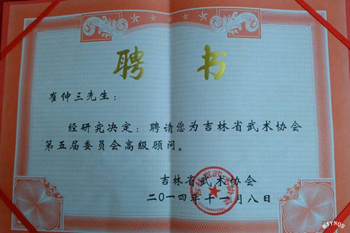 聘书
崔仲三先生：
经研究决定：聘请您为吉林省武术协会
第五届委员会高级顾问。
吉林省武术协会
二〇一四年十一月八日